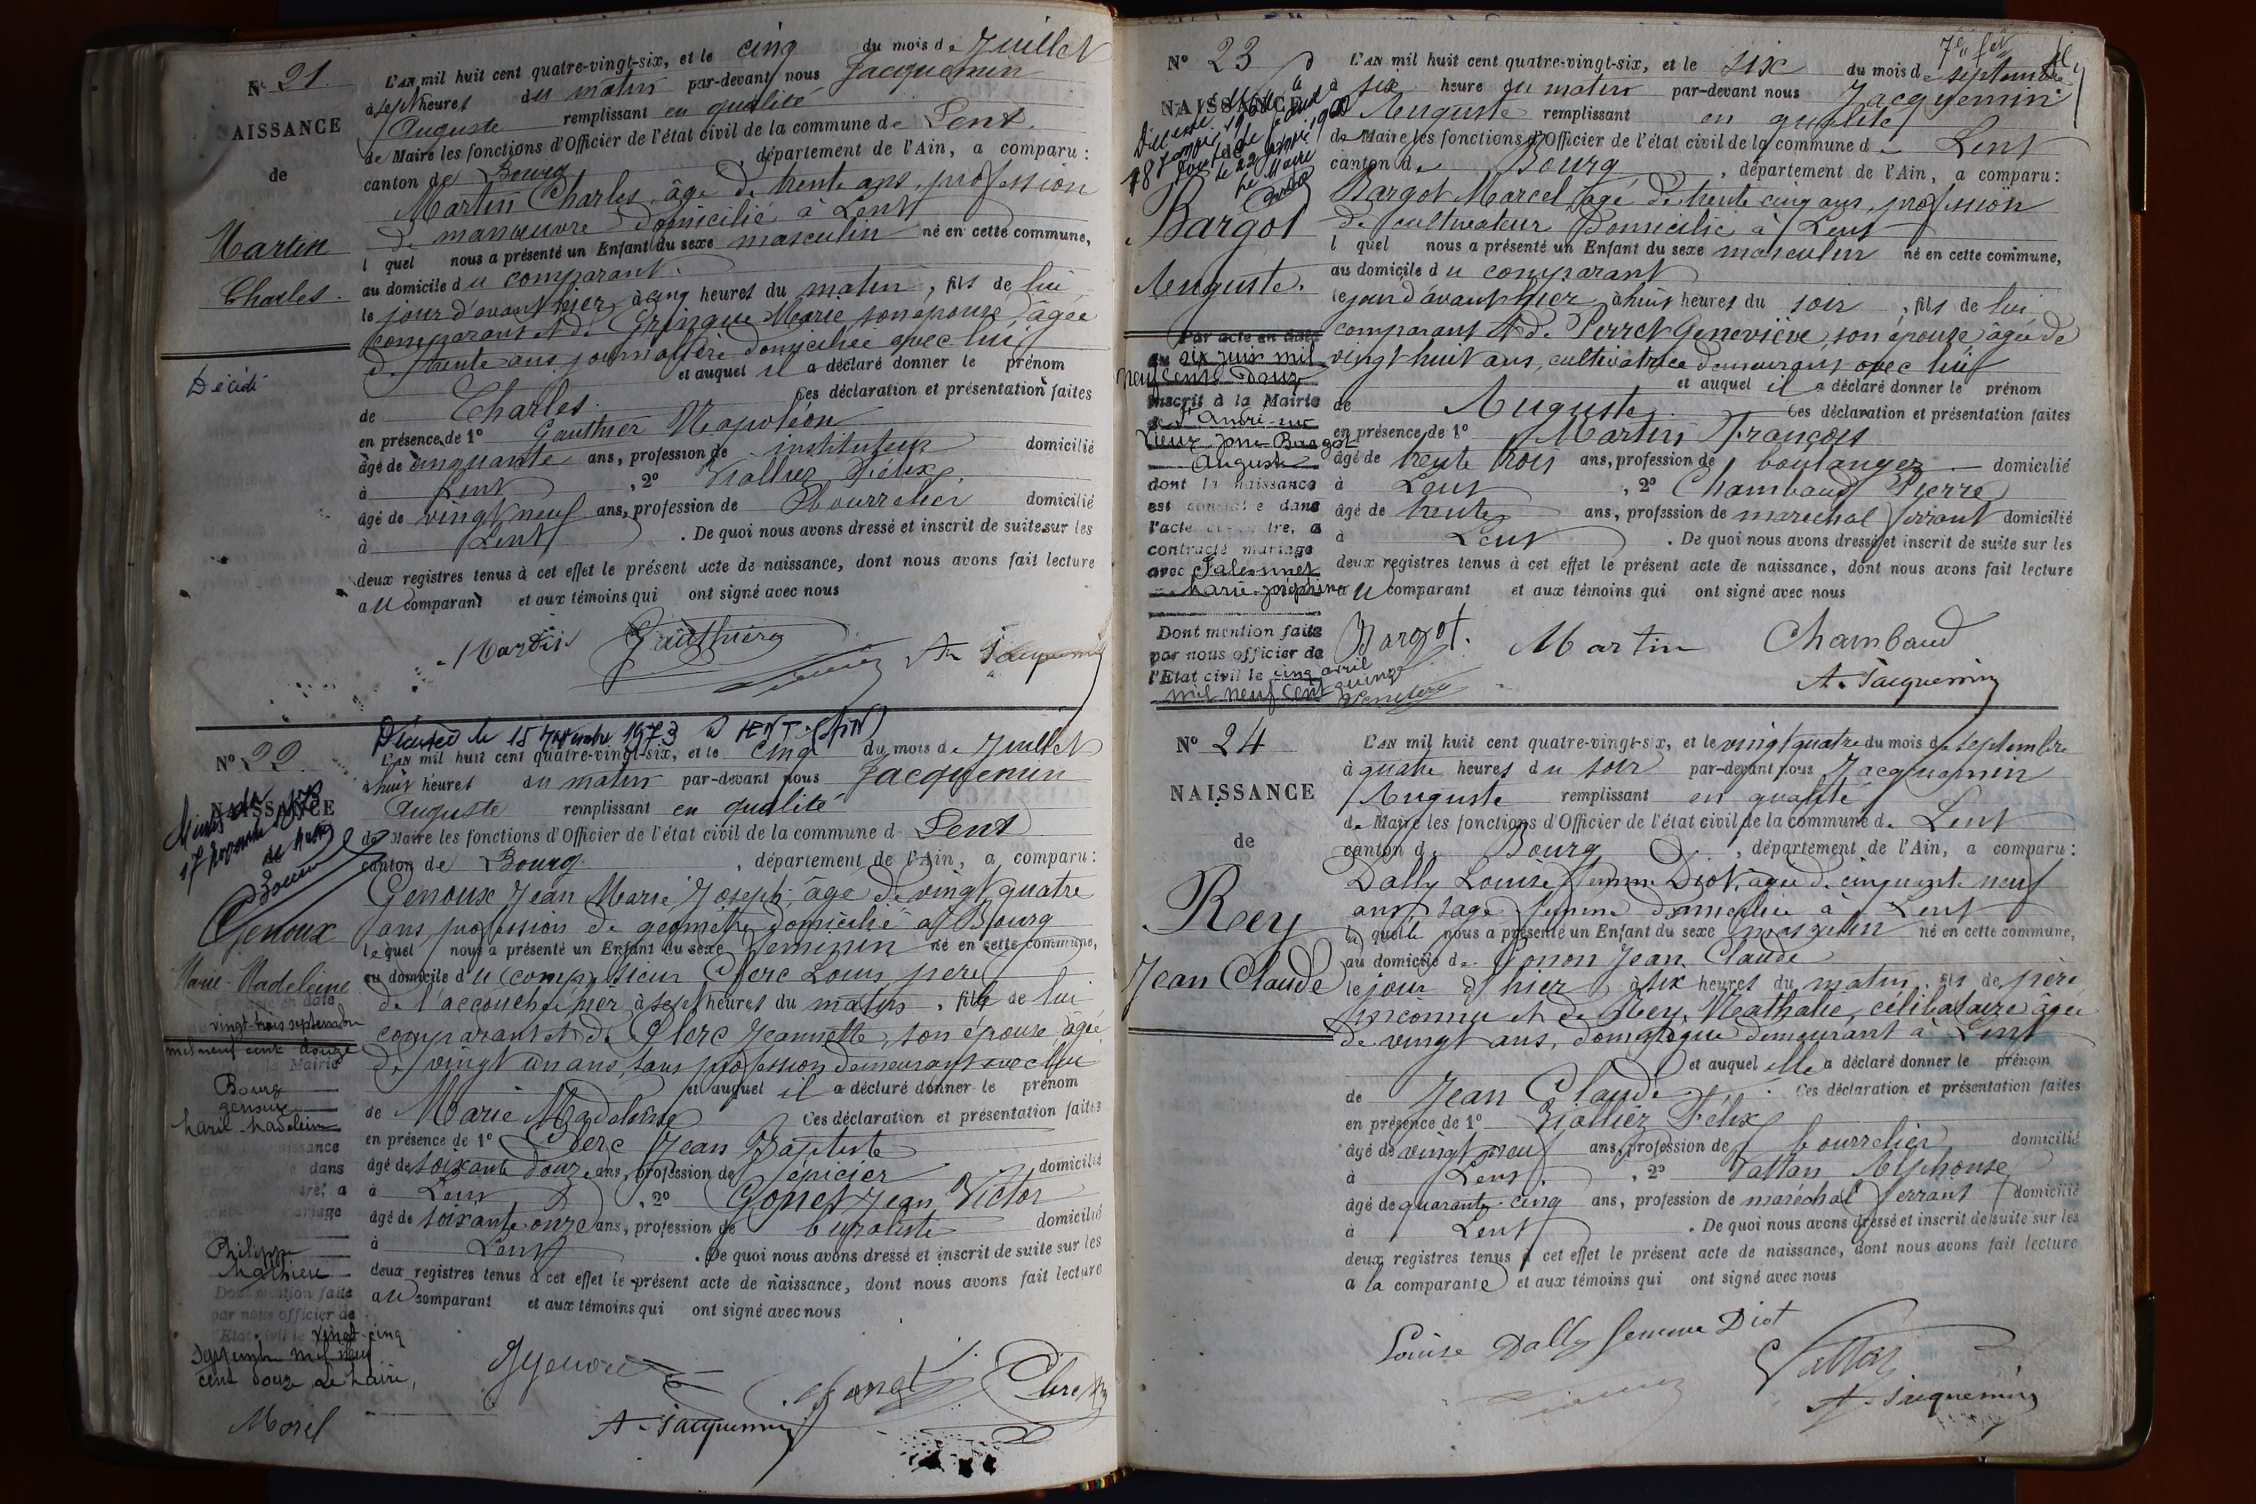 N° 21.
NAISSANCE
de
Martin
Charles.
Décédé
L'AN mil huit cent quatre-vingt-six, et le cinq du mois de Juillet
à sept heures du matin par-devant nous Jacquemin
Auguste remplissant en qualité
de Maire les fonctions d'Officier de l'état civil de la commune de Lent.
canton de Bourg, département de l'Ain, a comparu:
Martin Charles, âgé de trente ans, profession
de manœuvre domicilié à Lent
lequel nous a présenté un Enfant du sexe masculin né en cette commune,
au domicile du comparant.
le jour d'avant hier à cinq heures du matin, fils de lui
comparant et de Gringue Marie son épouse, âgée
de trente ans, journalière domiciliée avec lui,
et auquel il a déclaré donner le prénom
de Charles. Ces déclaration et présentation faites
en présence de 1° Gauthier Napoléon
âgé de cinquante ans, profession de instituteur domicilié
à Lent, 2° Viallier Félix,
âgé de vingt neuf ans, profession de bourrelier domicilié
à Lent. De quoi nous avons dressé et inscrit de suite sur les
deux registres tenus à cet effet le présent acte de naissance, dont nous avons fait lecture
au comparant et aux témoins qui ont signé avec nous
Martin Gauthier A. Jacquemin
Décédée le 15 novembre 1973 à LENT (AIN)
N° 22.
NAISSANCE
17 novembre 1973
Genoux
Marie-Madeleine
en date
vingt-trois septembre
mil neuf cent douze
la Mairie
Bourg
genoux
Marie-Madeleine
naissance
dans
a
mariage
Philippe
Mathieu
Dont mention faite
par nous officier de
l'Etat civil le vingt-cinq
septembre mil neuf
cent douze Le Maire,
Morel
L'AN mil huit cent quatre-vingt-six, et le cinq du mois de Juillet
à huit heures du matin par-devant nous Jacquemin
Auguste remplissant en qualité
de Maire les fonctions d'Officier de l'état civil de la commune de Lent
canton de Bourg, département de l'Ain, a comparu:
Genoux Jean Marie Joseph, âgé de vingt quatre
ans, profession de géomètre domicilié à Bourg
lequel nous a présenté un Enfant du sexe féminin né en cette commune,
au domicile du sieur Clerc Louis père
de l'accouchée hier à sept heures du matin, fille de lui
comparant et de Clerc Jeannette, son épouse, âgée
de vingt un ans, sans profession demeurant avec lui
et auquel il a déclaré donner le prénom
de Marie Madeleine Ces déclaration et présentation faites
en présence de 1° Clerc Jean Baptiste
âgé de soixante douze ans, profession de épicier domicilié
à Lent, 2° Gonet Jean Victor
âgé de soixante-onze ans, profession de buraliste domicilié
à Lent. De quoi nous avons dressé et inscrit de suite sur les
deux registres tenus à cet effet le présent acte de naissance, dont nous avons fait lecture
au comparant et aux témoins qui ont signé avec nous
Genoux Gonet Clerc
A. Jacquemin
N° 23
NAISSANCE
de
Bargot
Auguste.
Par acte en date
du six juin mil
neuf cent douze
inscrit à la Mairie
de St André-sur
Vieux-Jonc Bargot
Auguste
dont la naissance
est constatée dans
l'acte ci-contre, a
contracté mariage
avec
Marie-Joséphine
Dont mention faite
par nous officier de
l'Etat civil le cinq avril
mil neuf cent quinze
L'AN mil huit cent quatre-vingt-six, et le six du mois de septembre
à six heure du matin par-devant nous Jacquemin
Auguste remplissant en qualité
de Maire les fonctions d'Officier de l'état civil de la commune de Lent
canton de Bourg, département de l'Ain, a comparu:
Bargot Marcel âgé de trente cinq ans, profession
de cultivateur domicilié à Lent
l quel nous a présenté un Enfant du sexe masculin né en cette commune,
au domicile du comparant
le jour d'avant hier à huit heures du soir, fils de lui
comparant et de Perret Geneviève, son épouse âgée de
vingt-huit ans, cultivatrice demeurant avec lui
et auquel il a déclaré donner le prénom
de Auguste. Ces déclaration et présentation faites
en présence de 1° Martin François
âgé de trente trois ans, profession de boulanger domicilié
à Lent, 2° Chambaud Pierre
âgé de trente ans, profession de maréchal ferrant domicilié
à Lent. De quoi nous avons dressé et inscrit de suite sur les
deux registres tenus à cet effet le présent acte de naissance, dont nous avons fait lecture
au comparant et aux témoins qui ont signé avec nous
Bargot. Martin Chambaud
A. Jacquemin
N° 24
NAISSANCE
de
Rey
Jean Claude
L'AN mil huit cent quatre-vingt-six, et le vingt quatre du mois de septembre
à quatre heures du soir par-devant nous Jacquemin
Auguste remplissant en qualité
de Maire les fonctions d'Officier de l'état civil de la commune de Lent
canton de Bourg, département de l'Ain, a comparu:
Dally Louise femme Diot, âgée de cinquante neuf
ans, sage femme domiciliée à Lent
laquelle nous a présenté un Enfant du sexe masculin né en cette commune,
au domicile de Gonon Jean Claude
le jour d'hier à six heures du matin, fils de père
inconnu et de Rey Nathalie, célibataire âgée
de vingt ans, domestique demeurant à Lent
et auquel elle a déclaré donner le prénom
de Jean Claude. Ces déclaration et présentation faites
en présence de 1° Viallier Félix
âgé de vingt neuf ans, profession de bourrelier domicilié
à Lent, 2° Vallan Alphonse
âgé de quarante-cinq ans, profession de maréchal ferrant domicilié
à Lent. De quoi nous avons dressé et inscrit de suite sur les
deux registres tenus à cet effet le présent acte de naissance, dont nous avons fait lecture
a la comparante et aux témoins qui ont signé avec nous
Louise Dally femme Diot
A. Jacquemin